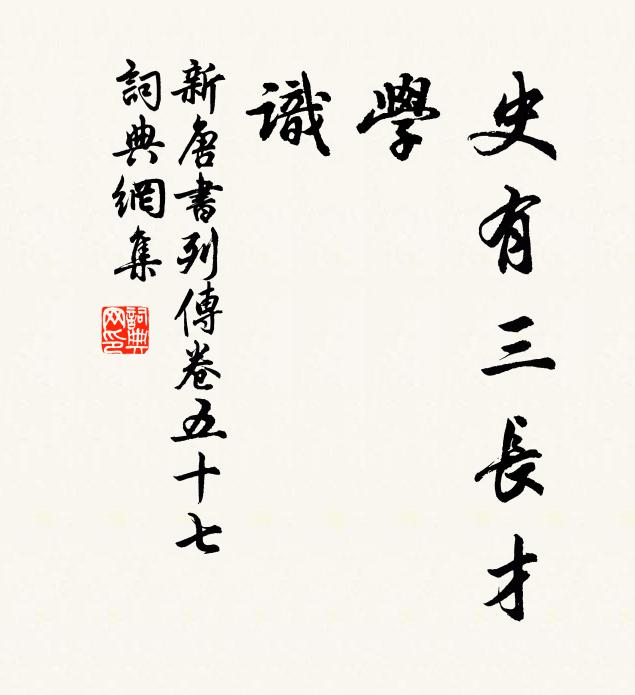 史有三長才
學
識
新唐書列傳卷五十七
詞典網集
詞典網印